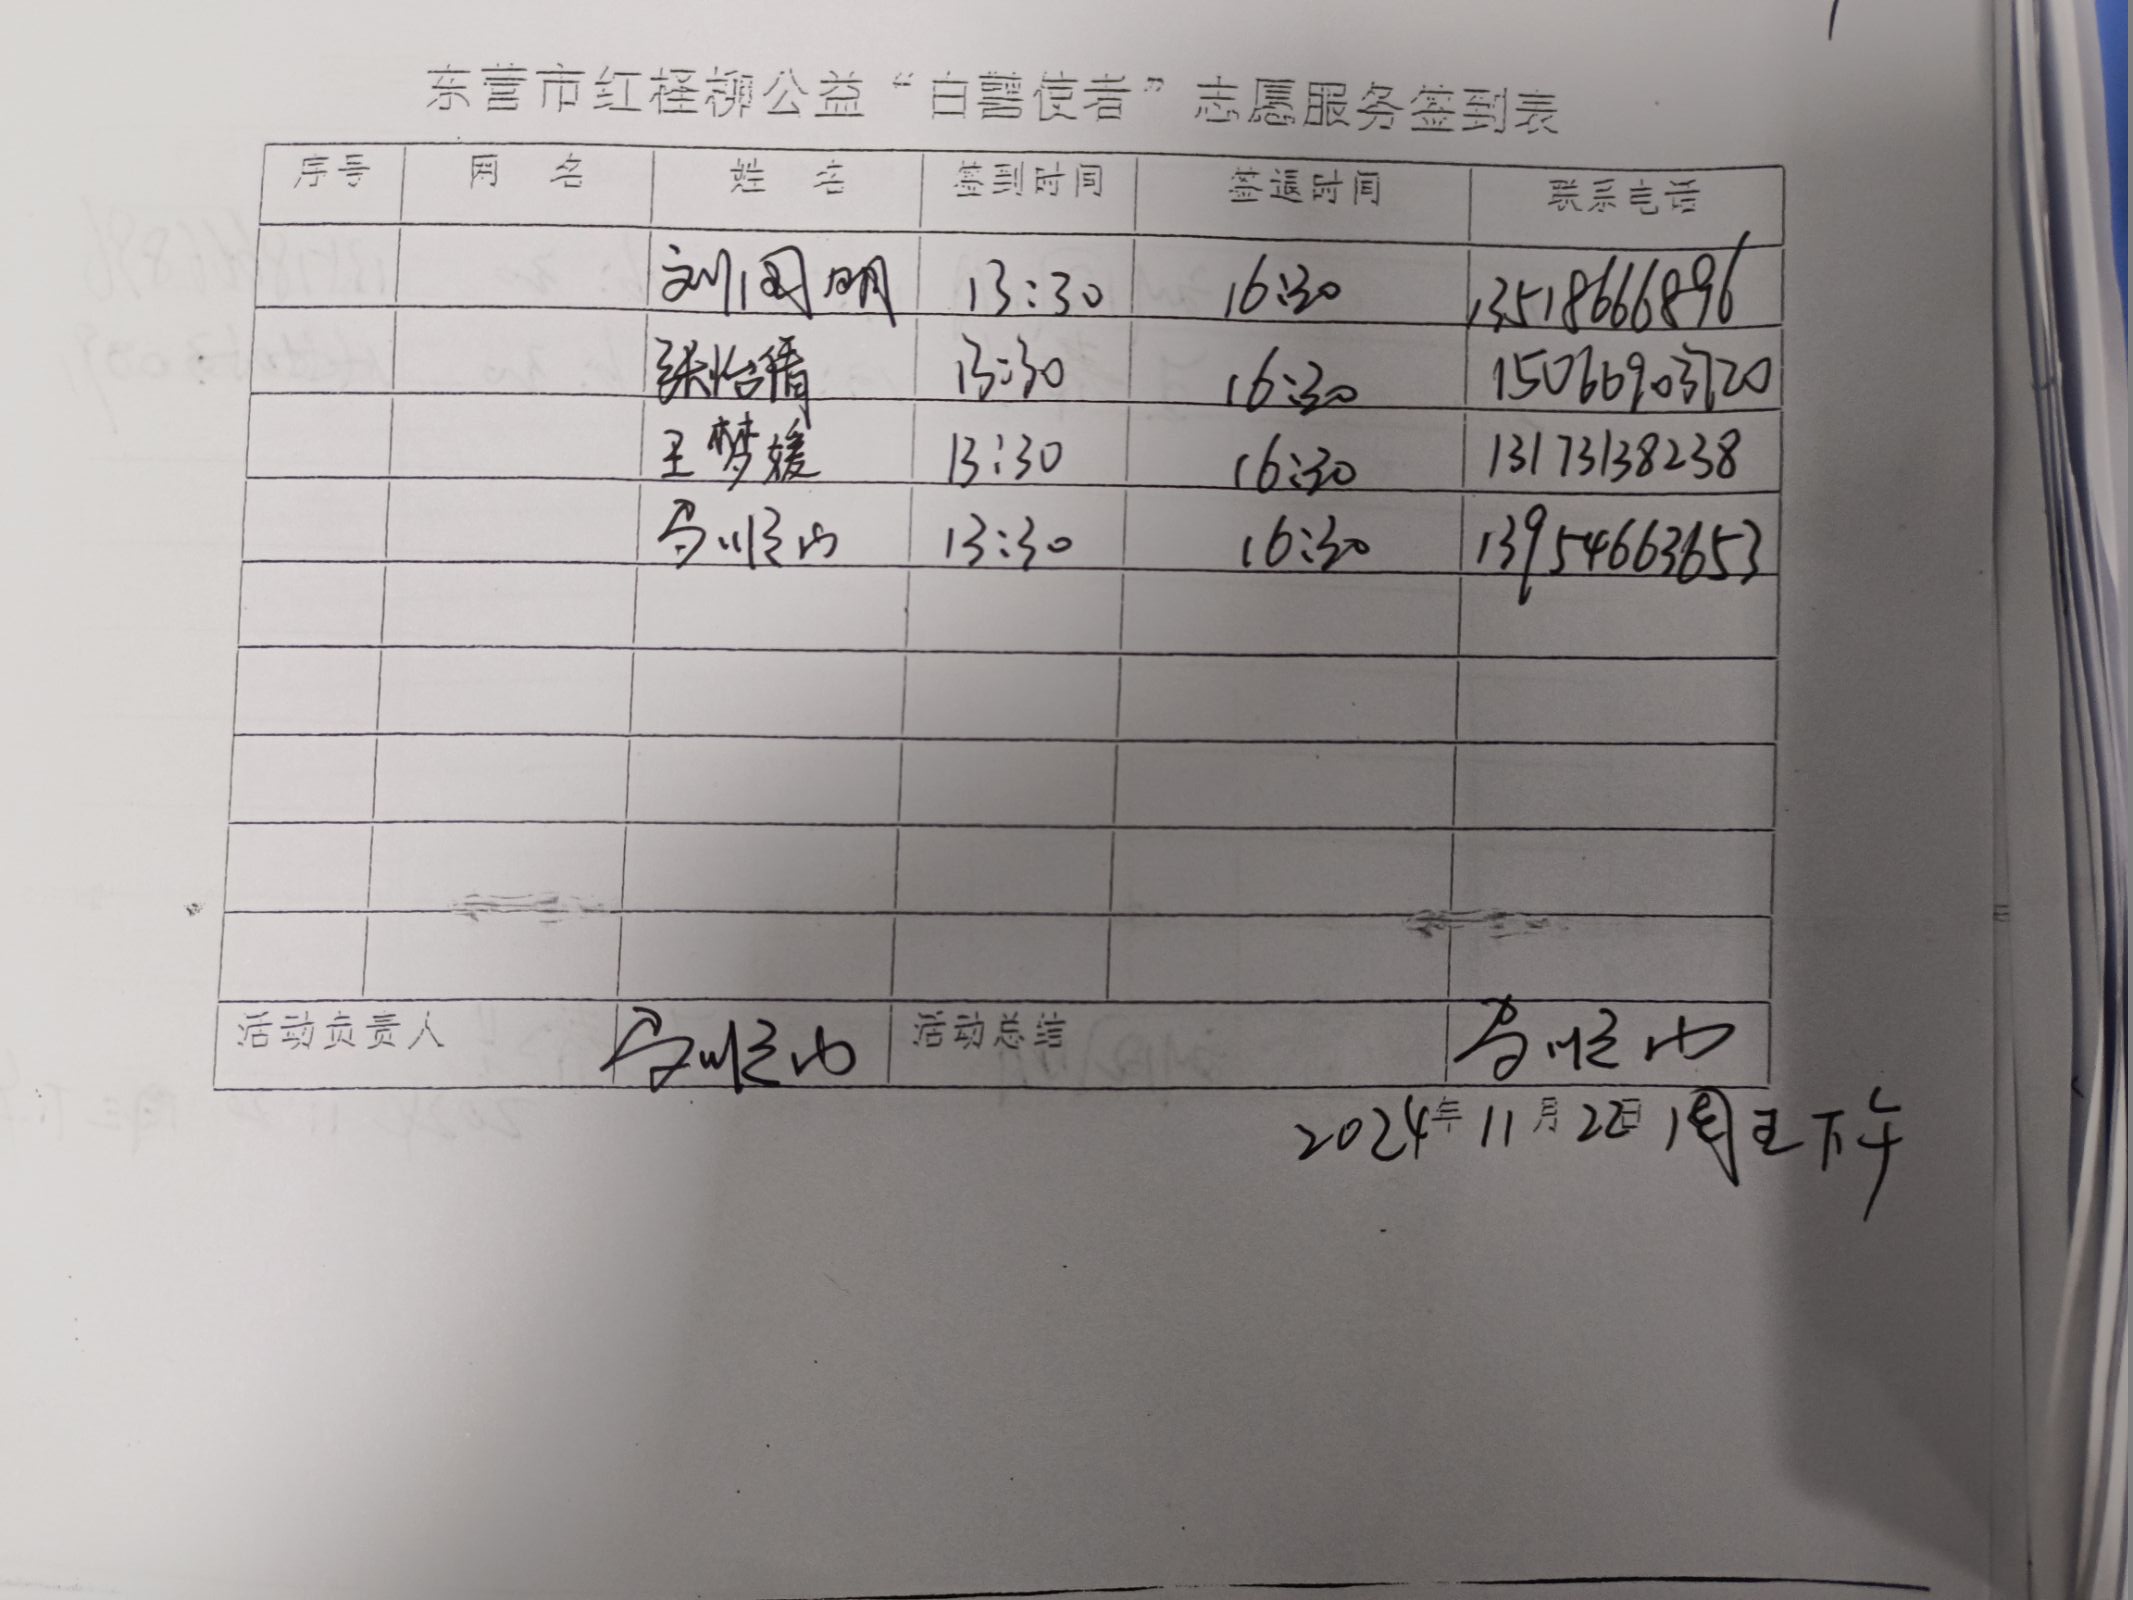 东营市红柽柳公益“白鹭使者”志愿服务签到表
序号 网 名 姓 名 签到时间 签退时间 联系电话
刘国明 13:30 16:30 13518666896
张怡倩 13:30 16:30 15066903720
王梦媛 13:30 16:30 13173138238
马顺山 13:30 16:30 13954663653
活动负责人 马顺山 活动总结 马顺山
2024年11月22日 周五下午